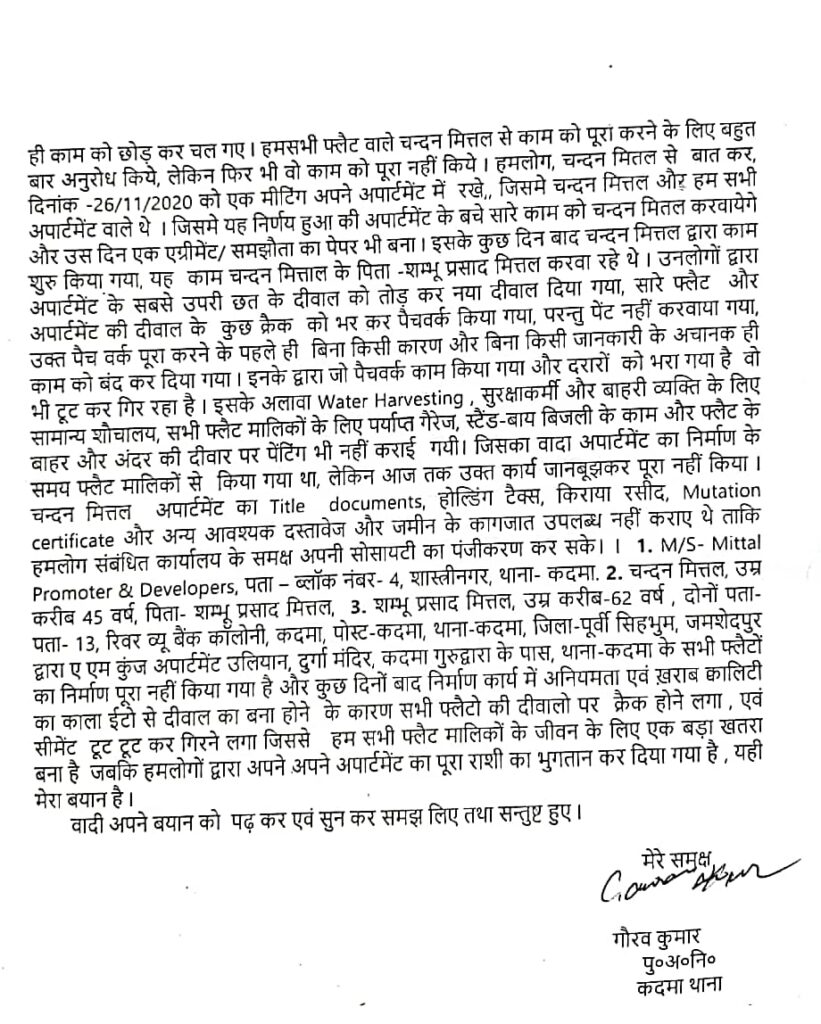 ही काम को छोड़ कर चल गए । हमसभी फ्लैट वाले चन्दन मित्तल से काम को पूरा करने के लिए बहुत
बार अनुरोध किये, लेकिन फिर भी वो काम को पूरा नहीं किये । हमलोग, चन्दन मितल से बात कर,
दिनांक -26/11/2020 को एक मीटिंग अपने अपार्टमेंट में रखे,, जिसमे चन्दन मित्तल और हम सभी
अपार्टमेंट वाले थे । जिसमे यह निर्णय हुआ की अपार्टमेंट के बचे सारे काम को चन्दन मितल करवायेगे
और उस दिन एक एग्रीमेंट/ समझौता का पेपर भी बना । इसके कुछ दिन बाद चन्दन मित्तल द्वारा काम
शुरु किया गया, यह काम चन्दन मित्ताल के पिता -शम्भू प्रसाद मित्तल करवा रहे थे । उनलोगों द्वारा
अपार्टमेंट के सबसे उपरी छत के दीवाल को तोड़ कर नया दीवाल दिया गया, सारे फ्लैट और
अपार्टमेंट की दीवाल के कुछ क्रैक को भर कर पैचवर्क किया गया, परन्तु पेंट नहीं करवाया गया,
उक्त पैच वर्क पूरा करने के पहले ही बिना किसी कारण और बिना किसी जानकारी के अचानक ही
काम को बंद कर दिया गया । इनके द्वारा जो पैचवर्क काम किया गया और दरारों को भरा गया है वो
भी टूट कर गिर रहा है । इसके अलावा Water Harvesting , सुरक्षाकर्मी और बाहरी व्यक्ति के लिए
सामान्य शौचालय, सभी फ्लैट मालिकों के लिए पर्याप्त गैरेज, स्टैंड-बाय बिजली के काम और फ्लैट के
बाहर और अंदर की दीवार पर पेंटिंग भी नहीं कराई गयी। जिसका वादा अपार्टमेंट का निर्माण के
समय फ्लैट मालिकों से किया गया था, लेकिन आज तक उक्त कार्य जानबूझकर पूरा नहीं किया ।
चन्दन मित्तल अपार्टमेंट का Title documents, होल्डिंग टैक्स, किराया रसीद, Mutation
certificate और अन्य आवश्यक दस्तावेज और जमीन के कागजात उपलब्ध नहीं कराए थे ताकि
हमलोग संबंधित कार्यालय के समक्ष अपनी सोसायटी का पंजीकरण कर सके। । 1. M/S- Mittal
Promoter & Developers, पता – ब्लॉक नंबर- 4, शास्त्रीनगर, थाना- कदमा. 2. चन्दन मित्तल, उम्र
करीब 45 वर्ष, पिता- शम्भू प्रसाद मित्तल, 3. शम्भू प्रसाद मित्तल, उम्र करीब-62 वर्ष , दोनों पता-
पता- 13, रिवर व्यू बैंक कॉलोनी, कदमा, पोस्ट-कदमा, थाना-कदमा, जिला-पूर्वी सिहभुम, जमशेदपुर
द्वारा ए एम कुंज अपार्टमेंट उलियान, दुर्गा मंदिर, कदमा गुरुद्वारा के पास, थाना-कदमा के सभी फ्लैटों
का निर्माण पूरा नहीं किया गया है और कुछ दिनों बाद निर्माण कार्य में अनियमता एवं ख़राब क्वालिटी
का काला ईटो से दीवाल का बना होने के कारण सभी फ्लैटो की दीवालो पर क्रैक होने लगा , एवं
सीमेंट टूट टूट कर गिरने लगा जिससे हम सभी फ्लैट मालिकों के जीवन के लिए एक बड़ा खतरा
बना है जबकि हमलोगों द्वारा अपने अपने अपार्टमेंट का पूरा राशी का भुगतान कर दिया गया है , यही
मेरा बयान है ।
वादी अपने बयान को पढ़ कर एवं सुन कर समझ लिए तथा सन्तुष्ट हुए ।
मेरे समक्ष
गौरव कुमार
पु०अ०नि०
कदमा थाना